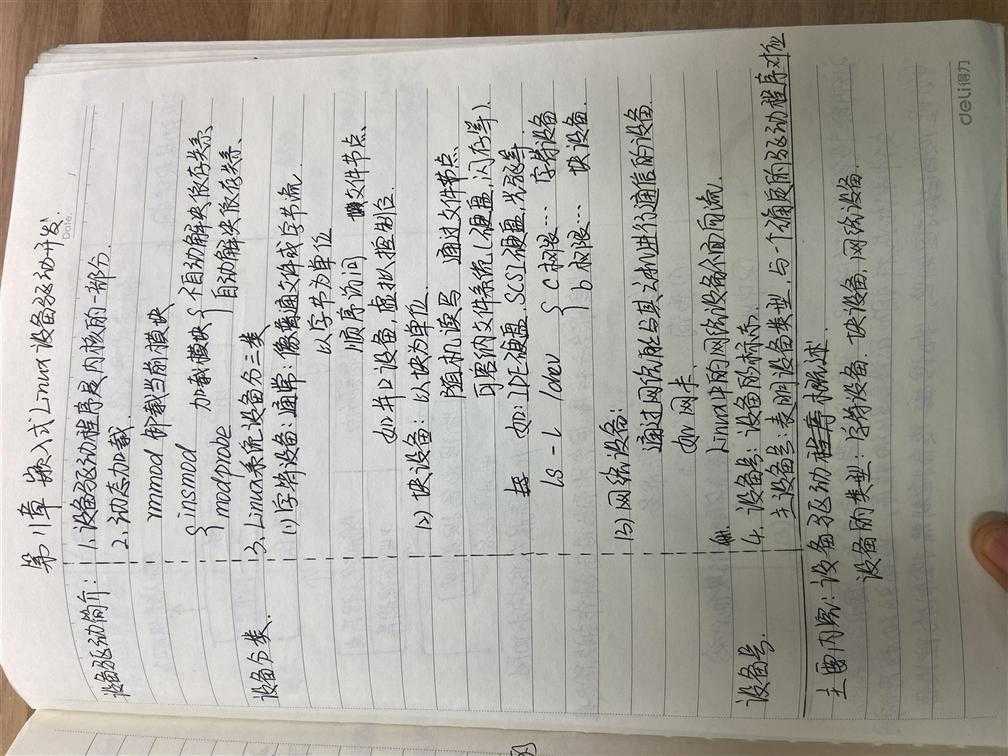 第11章 嵌入式Linux设备驱动开发.
Date.
设备驱动简介: 1.设备驱动程序是内核的一部分.
2.动态加载.
rmmod 卸载当前模块
{ insmod 加载模块 { 不自动解决依存关系.
modprobe 自动解决依存关系.
设备分类. 3. Linux系统设备分三类
(1)字符设备: 通常: 像普通文件或字节流.
以字节为单位
顺序访问 文件节点.
如 并口设备, 虚拟控制台.
(2) 块设备: 以块为单位.
随机读写 通过文件节点.
可容纳文件系统(硬盘,闪存等).
如: IDE硬盘. SCSI硬盘, 光驱等
ls -l /dev { c权限… 字符设备
b权限… 块设备.
(3)网络设备:
通过网络能与其动机进行通信的设备.
如 网卡.
Linux中的网络设备面向流.
设备号. 4. 设备号: 设备的标志.
主设备号: 表明设备类型, 与一个确定的驱动程序对应
主要内容: 设备驱动程序概述
设备的类型: 字符设备, 块设备, 网络设备.
deli得力